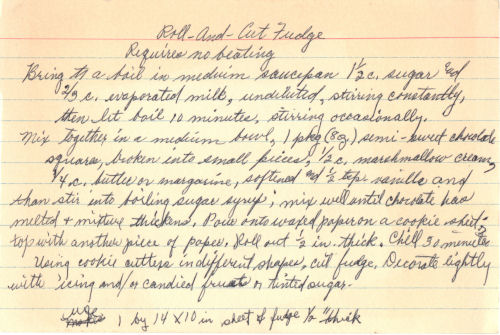 Roll-And-Cut Fudge
Requires no beating
Bring to a boil in medium saucepan 1 1/2 c. sugar and
2/3 c. evaporated milk, undiluted, stirring constantly,
then let boil 10 minutes, stirring occasionally.
Mix together in a medium bowl, 1 pkg (8 oz) semi-sweet chocolate
squares, broken into small pieces, 1/2 c. marshmallow cream,
1/4 c. butter or margarine, softened and 1/2 tsp. vanilla and
than stir into boiling sugar syrup; mix well until chocolate has
melted + mixture thickens. Pour onto waxed paper on a cookie sheet
top with another piece of paper. Roll out 1/2 in. thick. Chill 30 minutes
Using cookie cutters in different shapes, cut fudge. Decorate lightly
with icing and/or candied fruits or tinted sugar.
use
1 by 14 x 10 in sheet of fudge 1/2 " thick